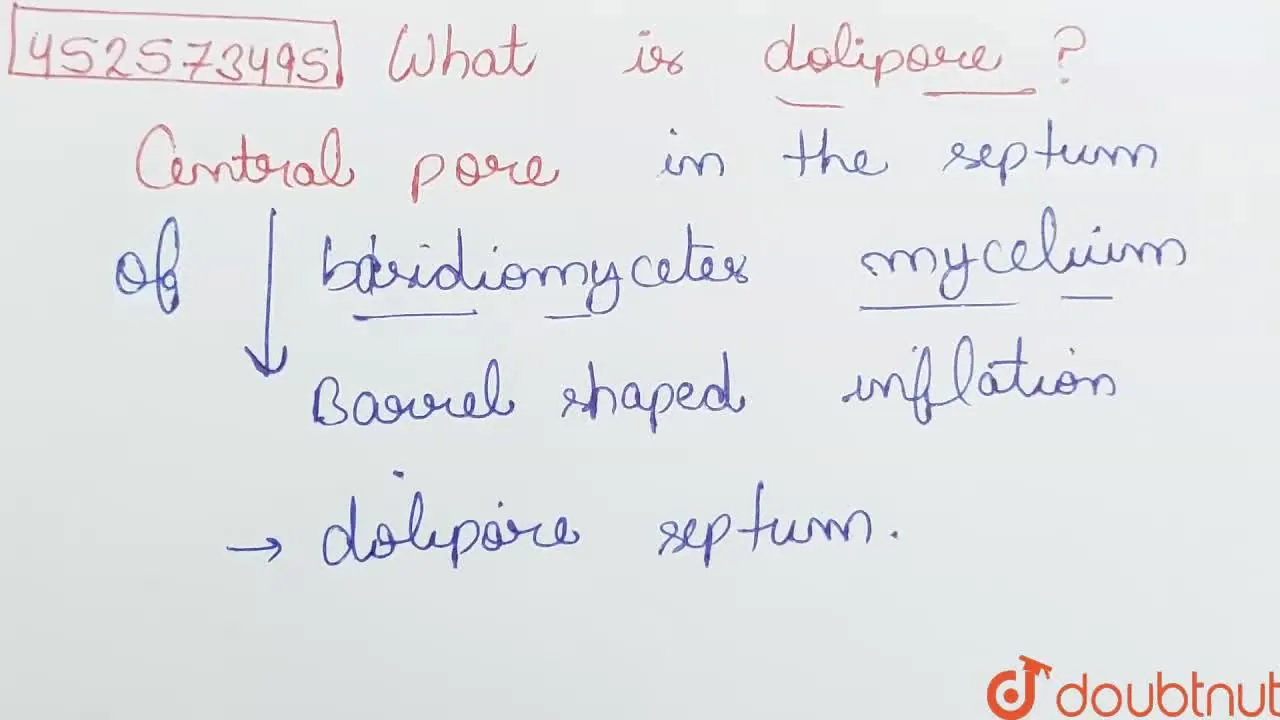 452573495 What is dolipore ?
Central pore in the septum
of basidiomycetes mycelium
Barrel shaped inflation
→ dolipore septum.
doubtnut